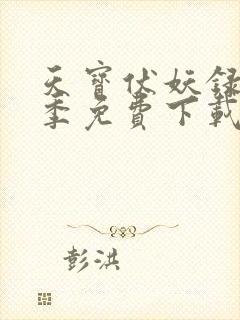 天寶伏妖録
季免費下載
彭洪